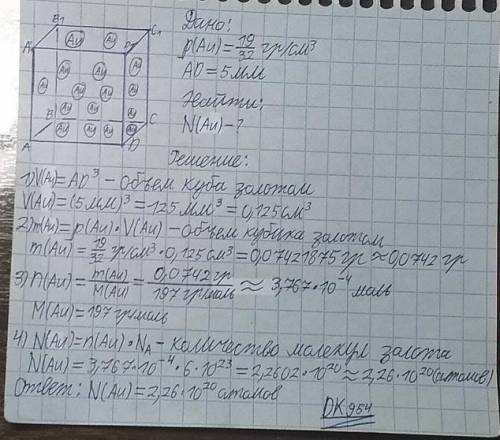 B₁ C₁
A₁ D₁
Au Au
Au Au Au
Au Au Au Au
B Au Au Au Au C
Au Au Au Au
A D
Дано:
ρ(Au) = 19/32 гр/см³
AD = 5 мм
Найти:
N(Au) - ?
Решение:
1) V(Au) = AD³ - объем куба золотом
V(Au) = (5 мм)³ = 125 мм³ = 0,125 см³
2) m(Au) = ρ(Au) · V(Au) - объем кубика золотом
m(Au) = 19/32 гр/см³ · 0,125 см³ = 0,07421875 гр ≈ 0,0742 гр
3) n(Au) = m(Au)/M(Au) = 0,0742 гр/197 гр/моль ≈ 3,767 · 10⁻⁴ моль
M(Au) = 197 гр/моль
4) N(Au) = n(Au) · Nₐ - количество молекул золота
N(Au) = 3,767 · 10⁻⁴ · 6 · 10²³ = 2,2602 · 10²⁰ ≈ 2,26 · 10²⁰ (атомов)
Ответ: N(Au) = 2,26 · 10²⁰ атомов
DK954